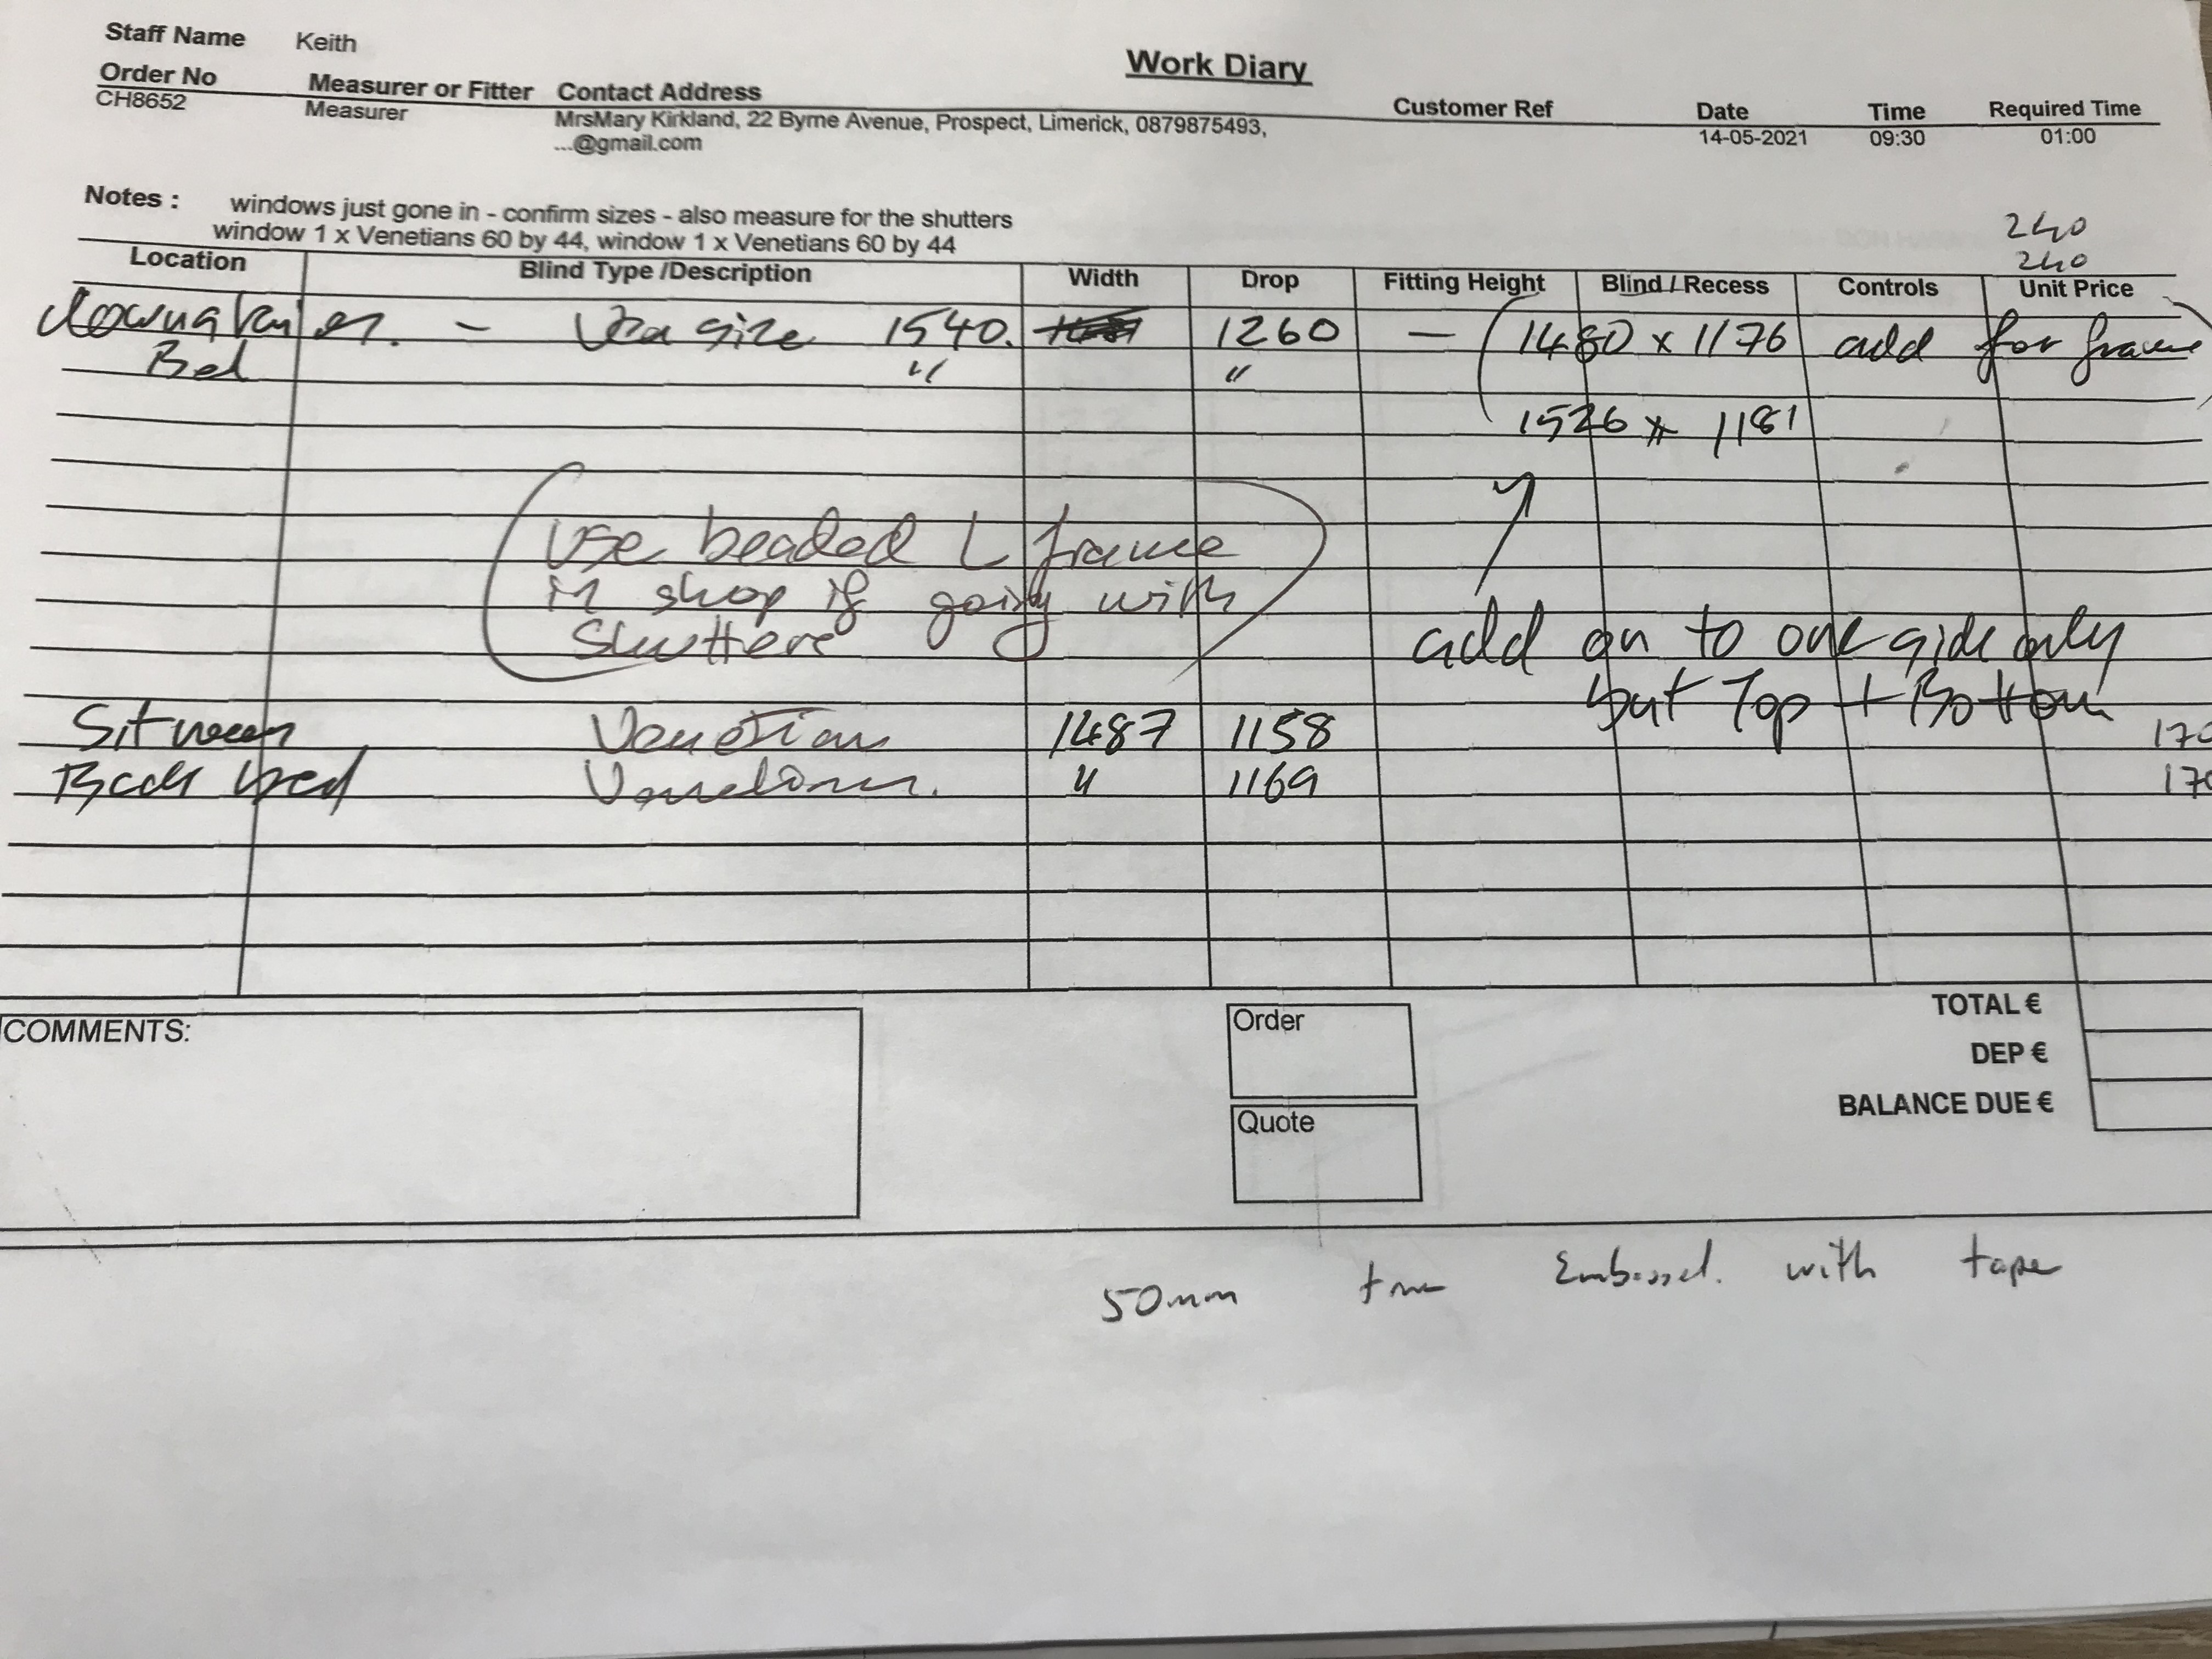 Work Diary
Staff Name Keith
Order No Measurer or Fitter Contact Address Customer Ref Date Time Required Time
CH8652 Measurer MrsMary Kirkland, 22 Byrne Avenue, Prospect, Limerick, 0879875493, 14-05-2021 09:30 01:00
...@gmail.com
Notes : windows just gone in - confirm sizes - also measure for the shutters
window 1 x Venetians 60 by 44, window 1 x Venetians 60 by 44
240
240
Location Blind Type /Description Width Drop Fitting Height Blind / Recess Controls Unit Price
- size 1540. 1260 - (1480 x 1176 add for frame)
Bed " "
1526 x 1181
(Use beaded L frame
in shop if going with
Shutters)
add on to one side only
but Top + Bottom
Sitroom Venetian 1487 1158 170
Back bed Venetian. " 1169 170
TOTAL €
DEP €
BALANCE DUE €
COMMENTS:
Order
Quote
50mm Embossed. with tape